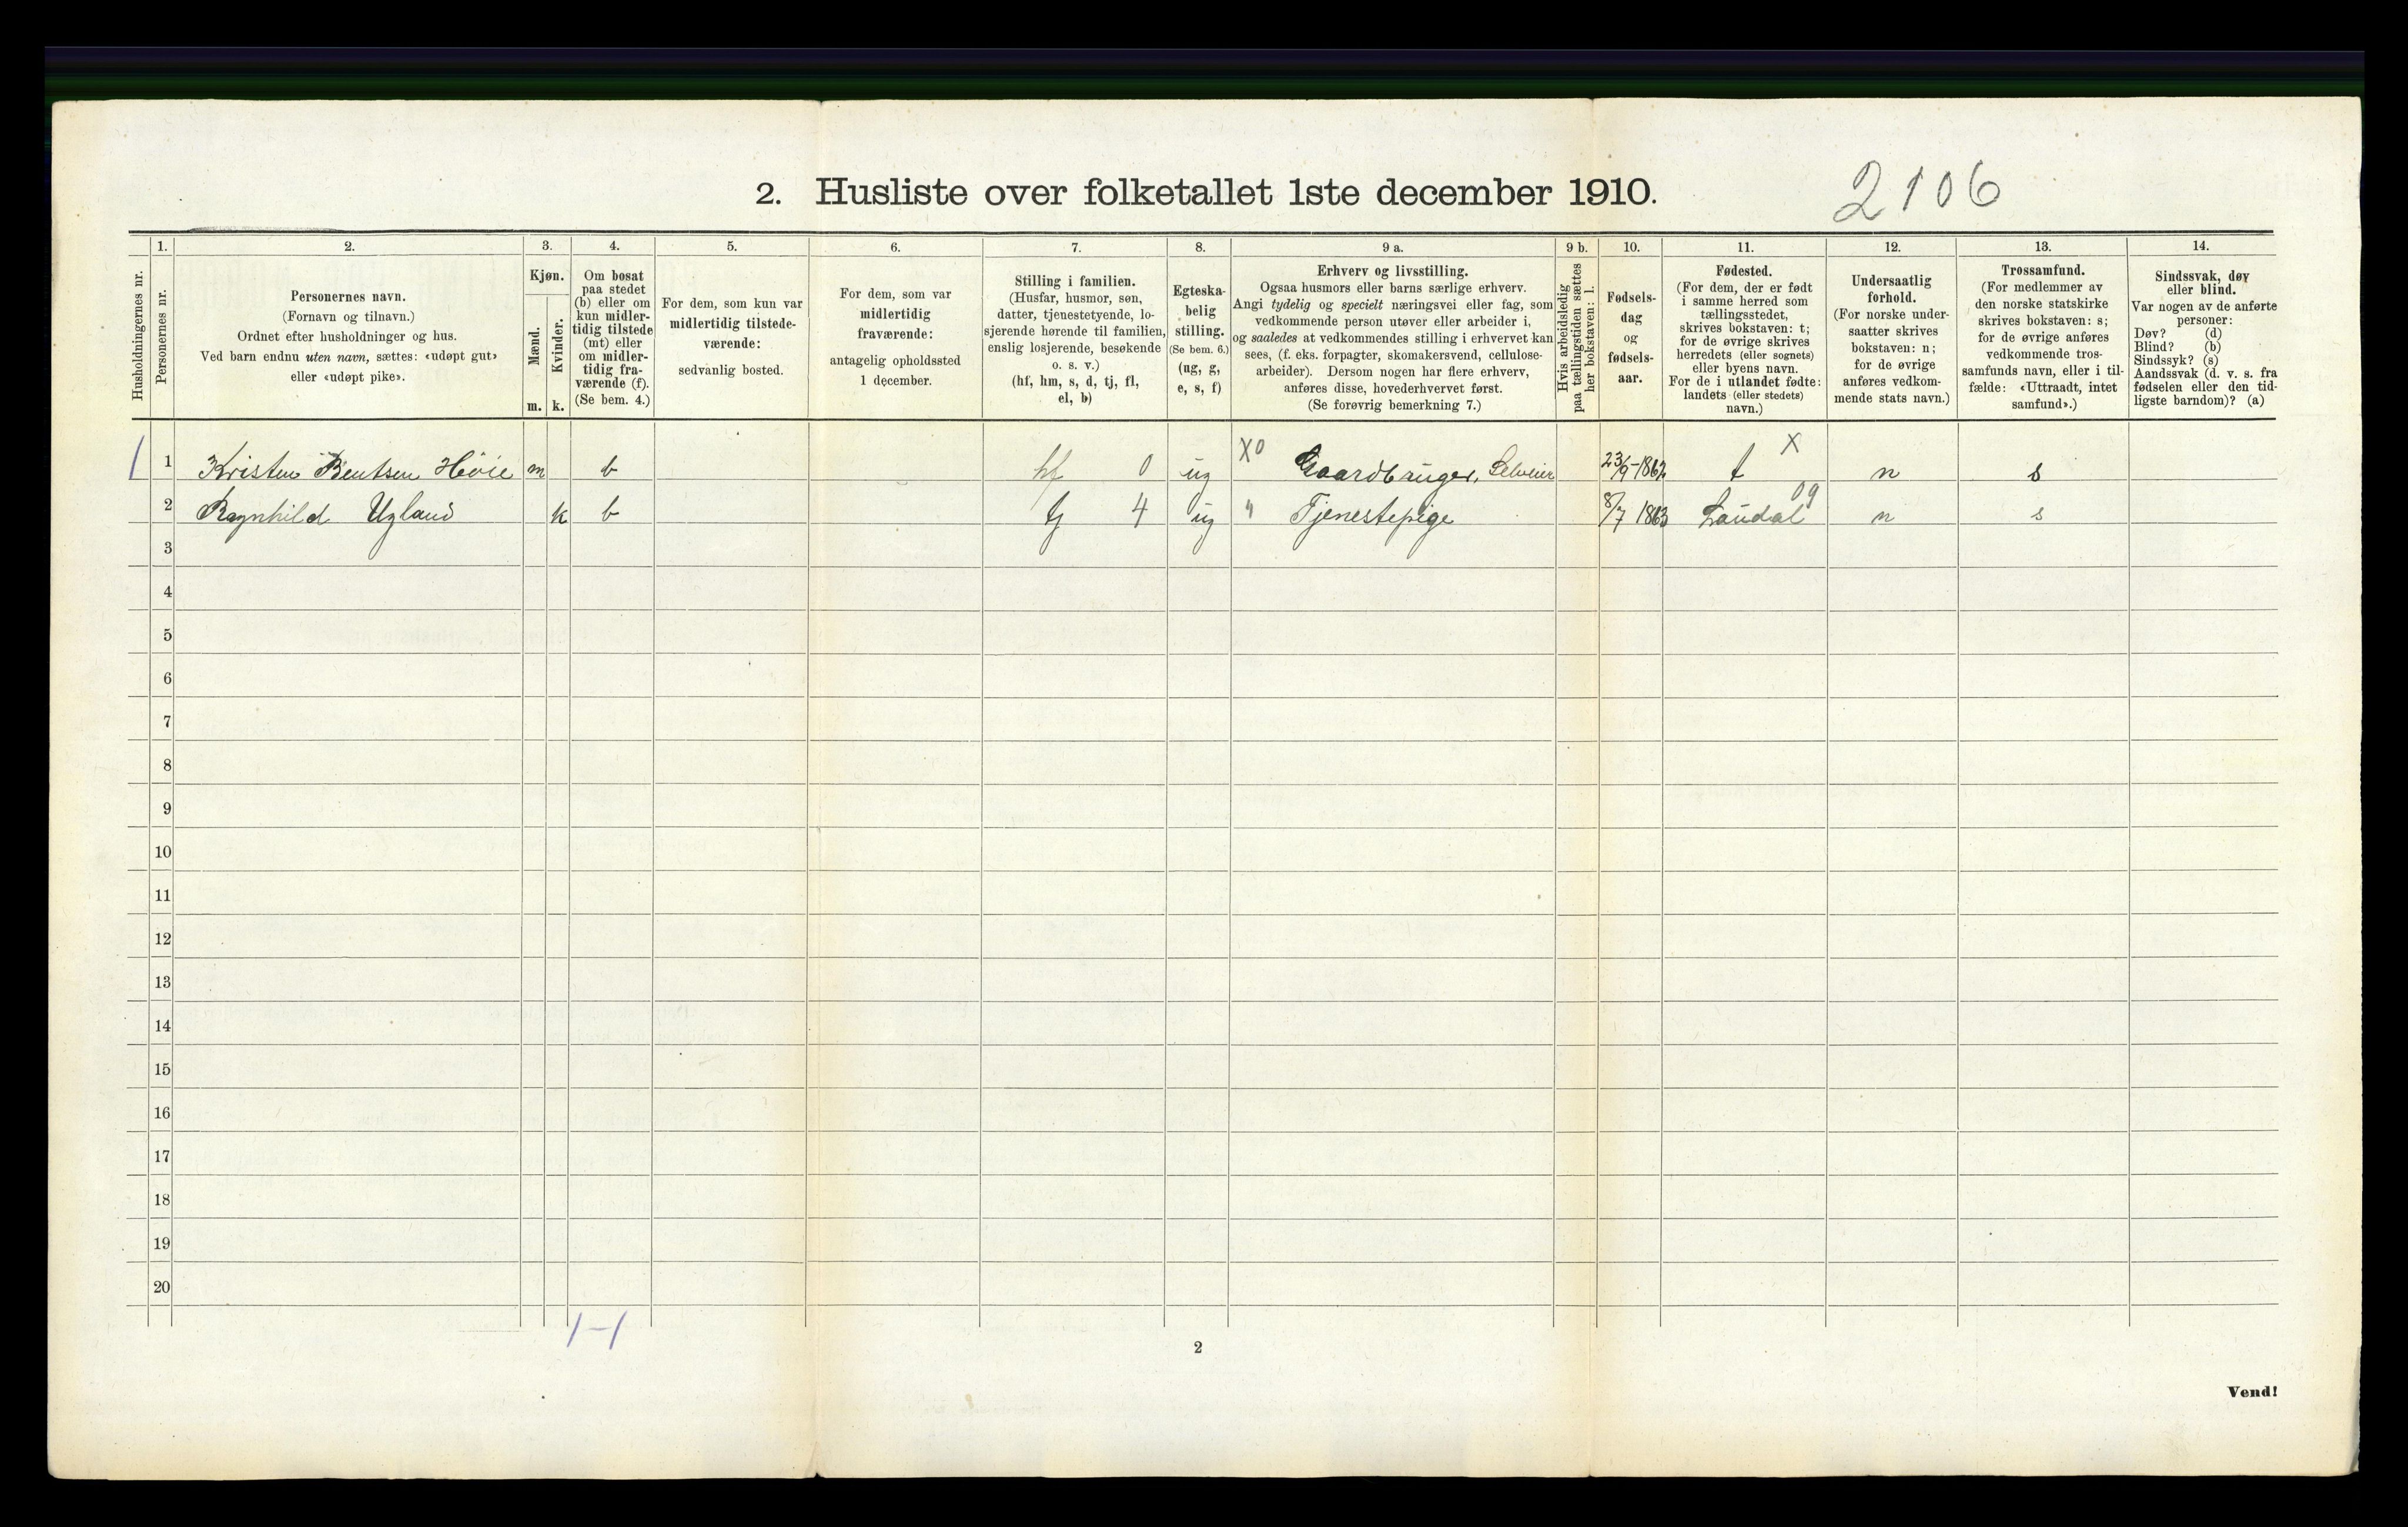 2. Husliste over folketallet 1ste december 1910.
2106
1.
2.
3.
4.
5.
6.
7.
8.
9 a.
9 b.
10.
11.
12.
13.
14.
Husholdningernes nr.
Personernes nr.
Personernes navn.
(Fornavn og tilnavn.)
Ordnet efter husholdninger og hus.
Ved barn endnu uten navn, sættes: «udøpt gut»
eller «udøpt pike».
Kjøn.
Mænd.
Kvinder.
m. k.
Om bosat
paa stedet
(b) eller om
kun midler-
tidig tilstede
(mt) eller
om midler-
tidig fra-
værende (f).
(Se bem. 4.)
For dem, som kun var
midlertidig tilstede-
værende:
sedvanlig bosted.
For dem, som var
midlertidig
fraværende:
antagelig opholdssted
1 december.
Stilling i familien.
(Husfar, husmor, søn,
datter, tjenestetyende, lo-
sjerende hørende til familien,
enslig losjerende, besøkende
o. s. v.)
(hf, hm, s, d, tj, fl,
el, b)
Egteska-
belig
stilling.
(Se bem. 6.)
(ug, g,
e, s, f)
Erhverv og livsstilling.
Ogsaa husmors eller barns særlige erhverv.
Angi tydelig og specielt næringsvei eller fag, som
vedkommende person utøver eller arbeider i,
og saaledes at vedkommendes stilling i erhvervet kan
sees, (f. eks. forpagter, skomakersvend, cellulose-
arbeider). Dersom nogen har flere erhverv,
anføres disse, hovederhvervet først.
(Se forøvrig bemerkning 7.)
Hvis arbeidsledig
paa tællingstiden sættes
her bokstaven: l.
Fødsels-
dag
og
fødsels-
aar.
Fødested.
(For dem, der er født
i samme herred som
tællingsstedet,
skrives bokstaven: t;
for de øvrige skrives
herredets (eller sognets)
eller byens navn.
For de i utlandet fødte:
landets (eller stedets)
navn.)
Undersaatlig
forhold.
(For norske under-
saatter skrives
bokstaven: n;
for de øvrige
anføres vedkom-
mende stats navn.)
Trossamfund.
(For medlemmer av
den norske statskirke
skrives bokstaven: s;
for de øvrige anføres
vedkommende tros-
samfunds navn, eller i til-
fælde: «Uttraadt, intet
samfund».)
Sindssvak, døv
eller blind.
Var nogen av de anførte
personer:
Døv? (d)
Blind? (b)
Sindssyk? (s)
Aandssvak (d. v. s. fra
fødselen eller den tid-
ligste barndom)? (a)
1 1 Kristen Bentsen Höie m b hf 0 ug X0 Gaardbruger, Selveier 23/9-1862 t X n s
2 Ragnhild Ugland k b tj 4 ug " Tjenestepige 8/7 1863 Laudal 09 n s
3
4
5
6
7
8
9
10
11
12
13
14
15
16
17
18
19
20
1-1
2
Vend!